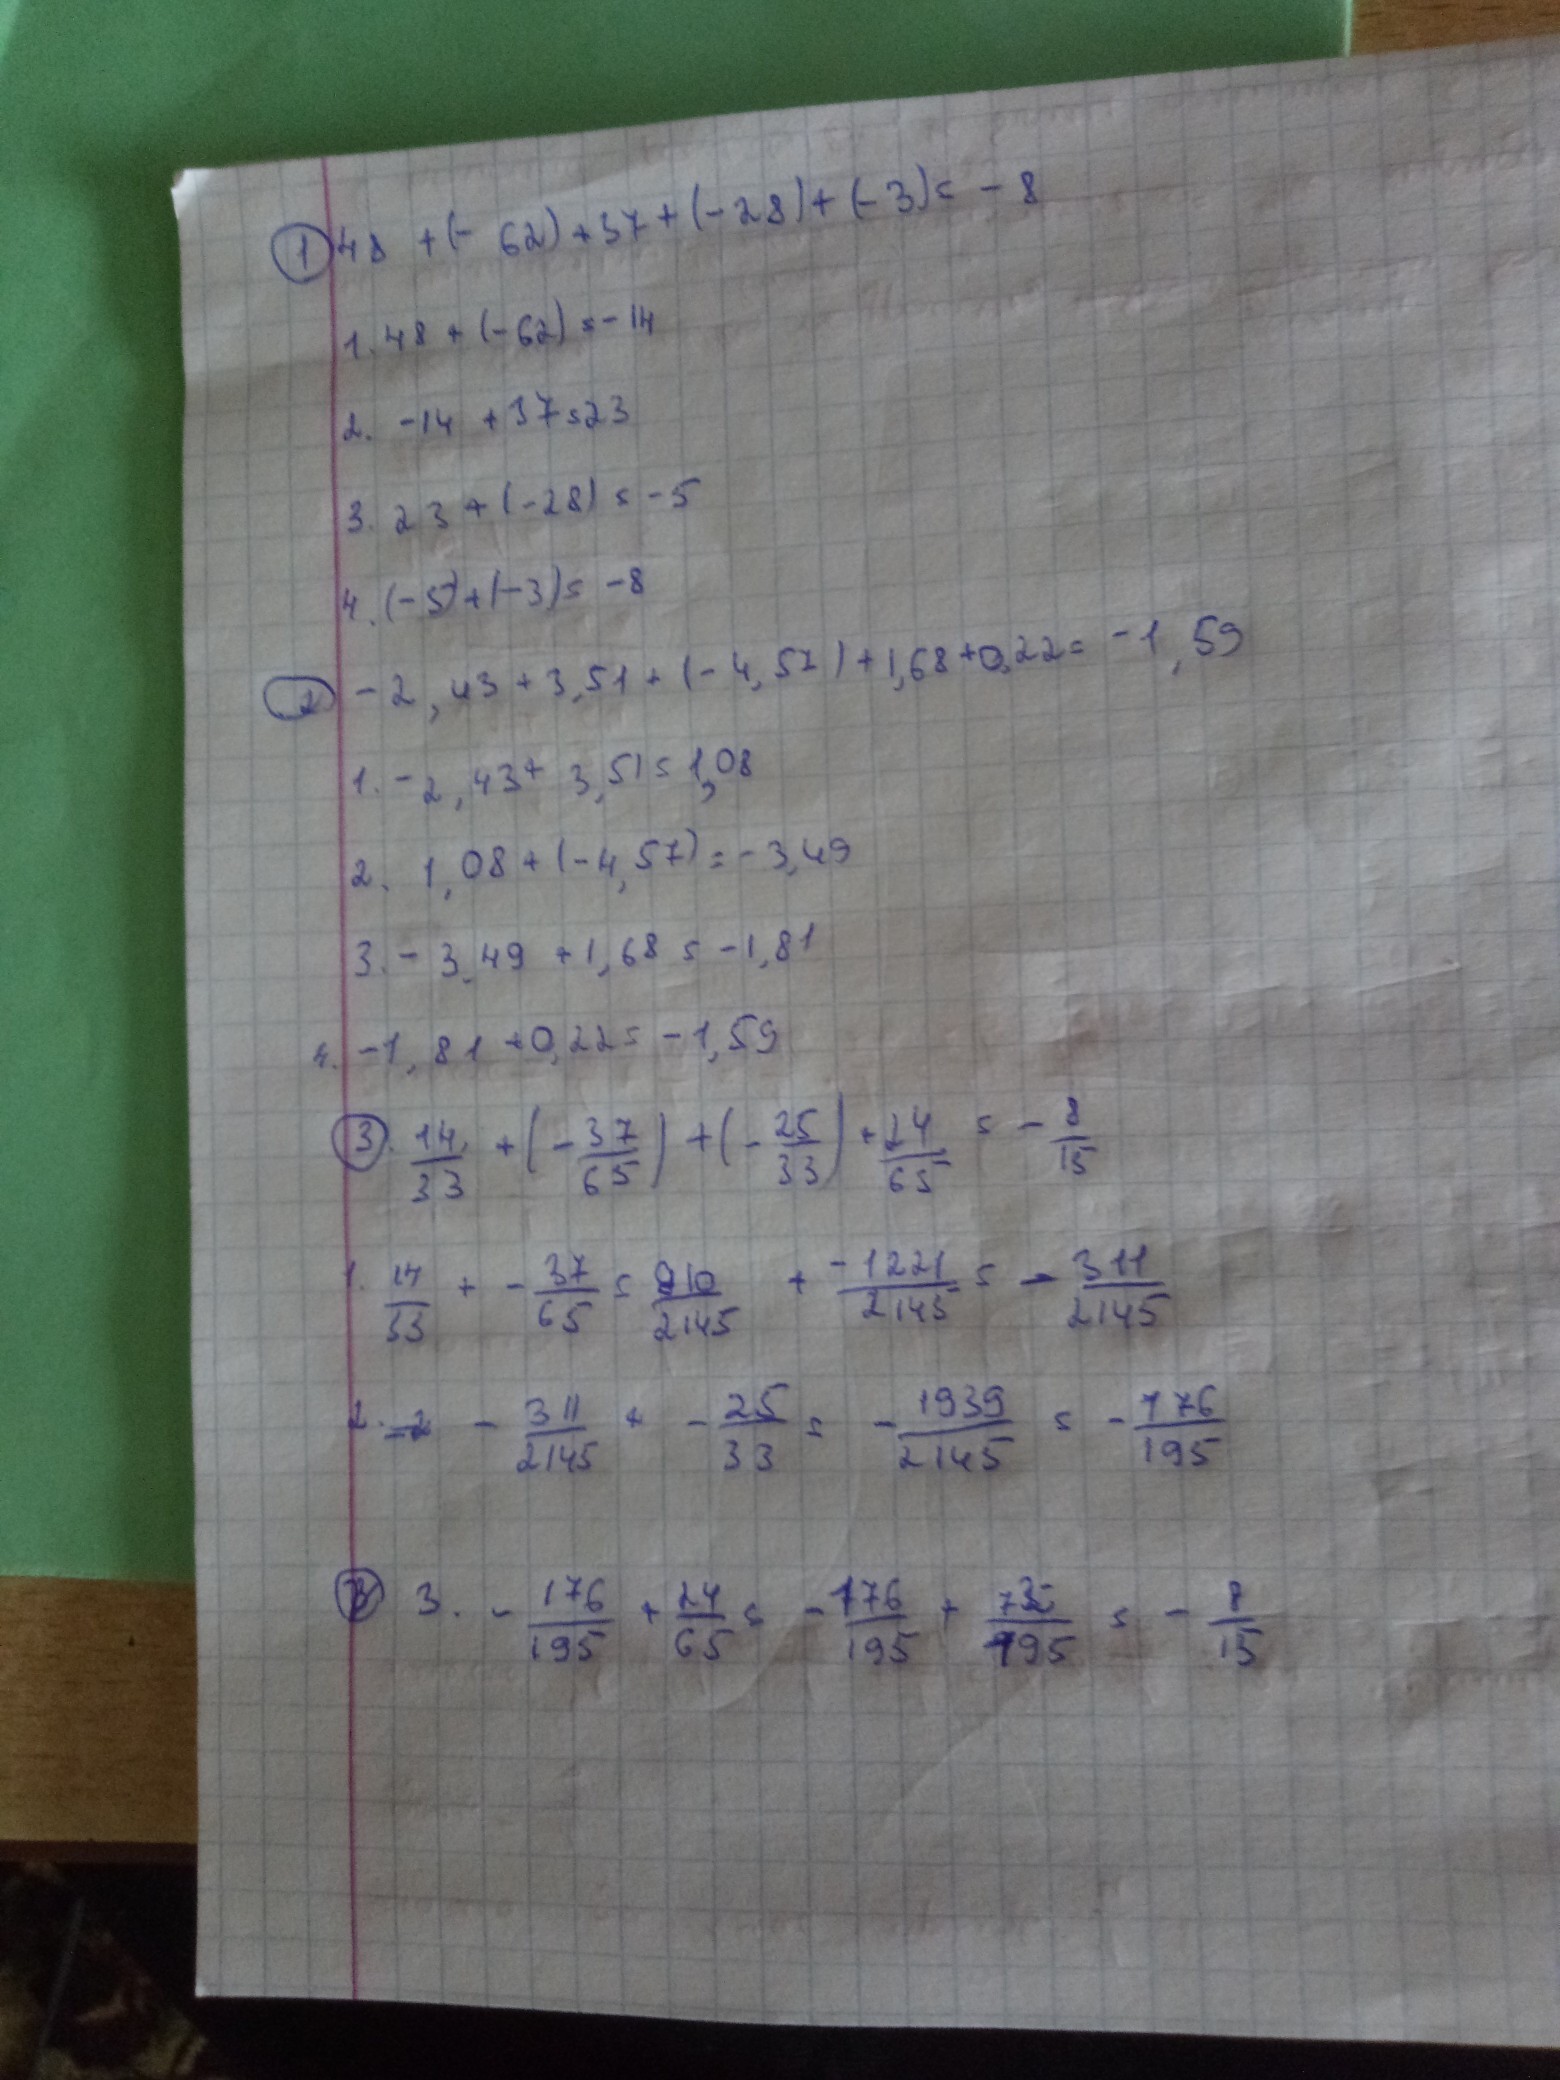 1 48 + (- 62) + 37 + (-28) + (-3) = - 8
1. 48 + (-62) = -14
2. -14 + 37 = 23
3. 23 + (-28) = -5
4. (-5) + (-3) = -8
2 -2,43 + 3,51 + (-4,57) + 1,68 + 0,22 = -1,59
1. -2,43 + 3,51 = 1,08
2. 1,08 + (-4,57) = -3,49
3. -3,49 + 1,68 = -1,81
4. -1,81 + 0,22 = -1,59
3. 14/33 + (-37/65) + (-25/33) + 24/65 = -8/15
1. 14/33 + -37/65 = 910/2145 + -1221/2145 = -311/2145
2. - 311/2145 + -25/33 = -1939/2145 = -176/195
3. -176/195 + 24/65 = -176/195 + 72/195 = -8/15